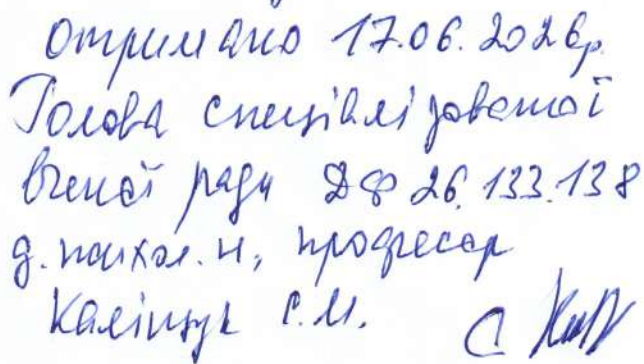 отримано 17.06.2026р.
Голова спеціалізованої
вченої ради ДФ 26.133.138
д. психол. н., професор
Каліщук С.М.